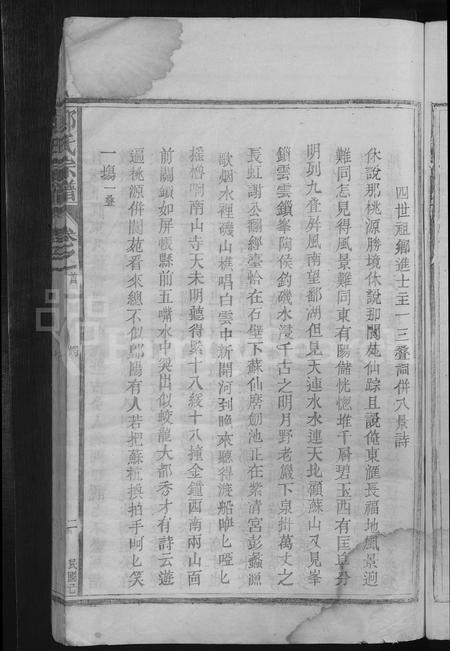 四世祖鄉進士至一三叠詞併八景詩
休說那桃源勝境休說那閬苑仙踪且說俺東滙長福地風景迥
難同怎見得風景難同東有陽儲恍惚堆千層碧玉西有匡阜分
明列九叠屏風南望鄱湖但見天連水水連天北顧蘇山又見峯
鎖雲雲鎖峯陶侯釣磯水浸千古之明月野老巖下泉掛萬丈之
長虹謝公翻經臺恰在石壁下蘇仙磨劒池正在紫清宮彭蠡源
歌烟水裡磯山樵唱白雲中新開河到晚來聽得渡船聲匕啞匕
搖櫓响南山寺天未明聽得緊十八緩十八撞金鐘西南兩山面
前關鎖如屏帳縣前五嘴水中突出似蛟龍大都秀才有詩云遊
遍桃源併閬苑看來總不似都陽有人若把蘇杭換拍手呵匕笑
一塲一叠
氏宗譜
卷之
首
二
民國元